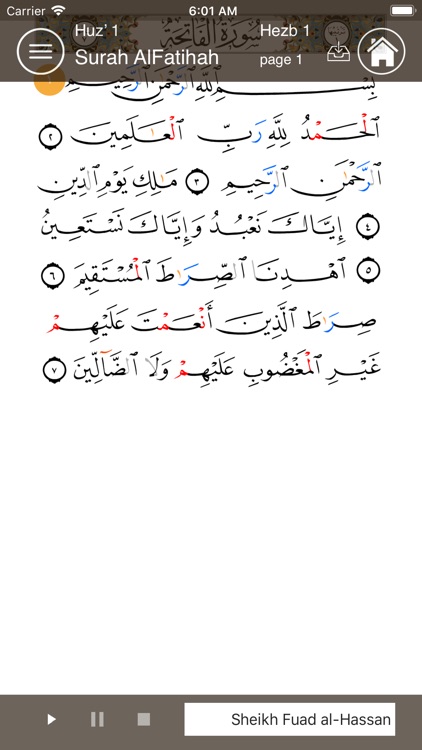 Carrier 6:01 AM
Huz' 1 سورة الفاتحة Hezb 1
Surah AlFatihah page 1
بِسْمِ ٱللَّهِ ٱلرَّحْمَٰنِ ٱلرَّحِيمِ
ٱلْحَمْدُ لِلَّهِ رَبِّ ٱلْعَٰلَمِينَ ٢
ٱلرَّحْمَٰنِ ٱلرَّحِيمِ ٣ مَٰلِكِ يَوْمِ ٱلدِّينِ
٤ إِيَّاكَ نَعْبُدُ وَإِيَّاكَ نَسْتَعِينُ
٥ ٱهْدِنَا ٱلصِّرَٰطَ ٱلْمُسْتَقِيمَ ٦
صِرَٰطَ ٱلَّذِينَ أَنْعَمْتَ عَلَيْهِمْ
غَيْرِ ٱلْمَغْضُوبِ عَلَيْهِمْ وَلَا ٱلضَّآلِّينَ ٧
Sheikh Fuad al-Hassan